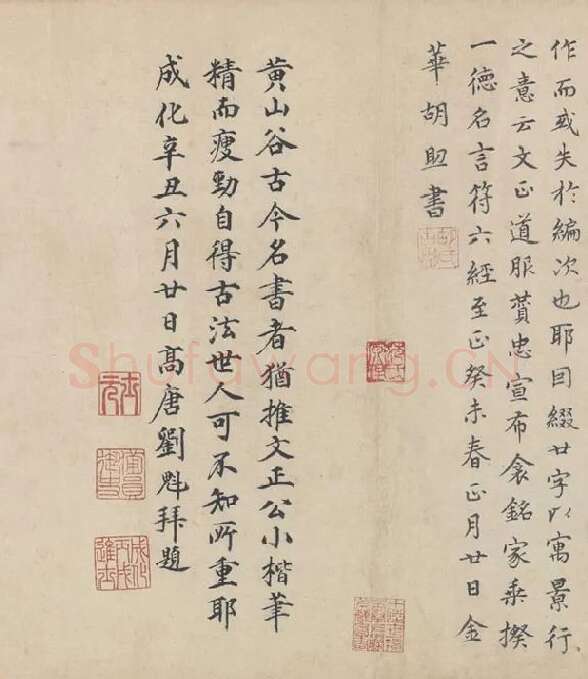 作而或失於編次也耶囙綴廿字以寓景行
之意云文正道服賛忠宣布衾銘家乗揆
一德名言符六經至正癸未春正月廿日金
華胡助書
黄山谷古今名書者猶推文正公小楷筆
精而瘦勁自得古法世人可不知所重耶
成化辛丑六月廿日髙唐劉魁拜題
Shufawang.CN